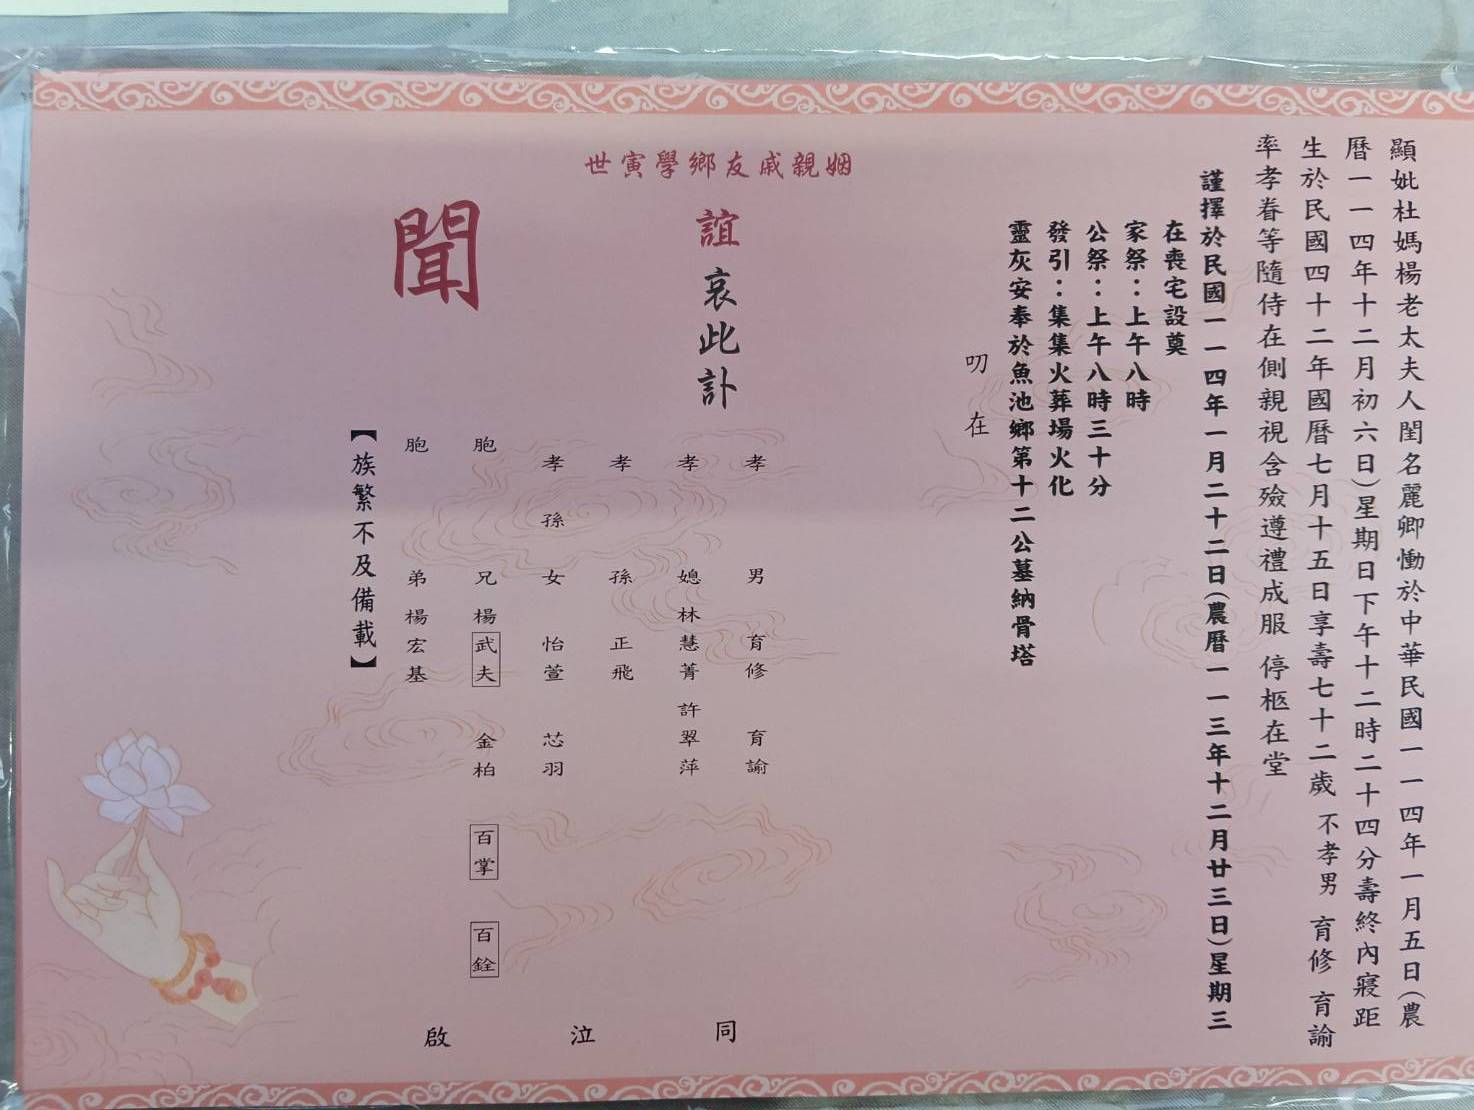 顯妣杜媽楊老太夫人閨名麗卿慟於中華民國一一四年一月五日(農
曆一一四年十二月初六日)星期日下午十二時二十四分壽終內寢距
生於民國四十二年國曆七月十五日享壽七十二歲 不孝男 育修 育諭
率孝眷等隨侍在側親視含殮遵禮成服 停柩在堂
謹擇於民國一一四年一月二十二日(農曆一一三年十二月廿三日)星期三
在喪宅設奠
家祭：上午八時
公祭：上午八時三十分
發引：集集火葬場火化
靈灰安奉於魚池鄉第十二公墓納骨塔
叨在
姻親戚友鄉學寅世
誼 哀此訃
聞
孝男 育修 育諭
孝媳 林慧菁 許翠萍
孝孫 正飛
孝孫女 怡萱 芯羽
胞兄 楊武夫 金柏 百掌 百銓
胞弟 楊宏基
【族繁不及備載】
同泣啟